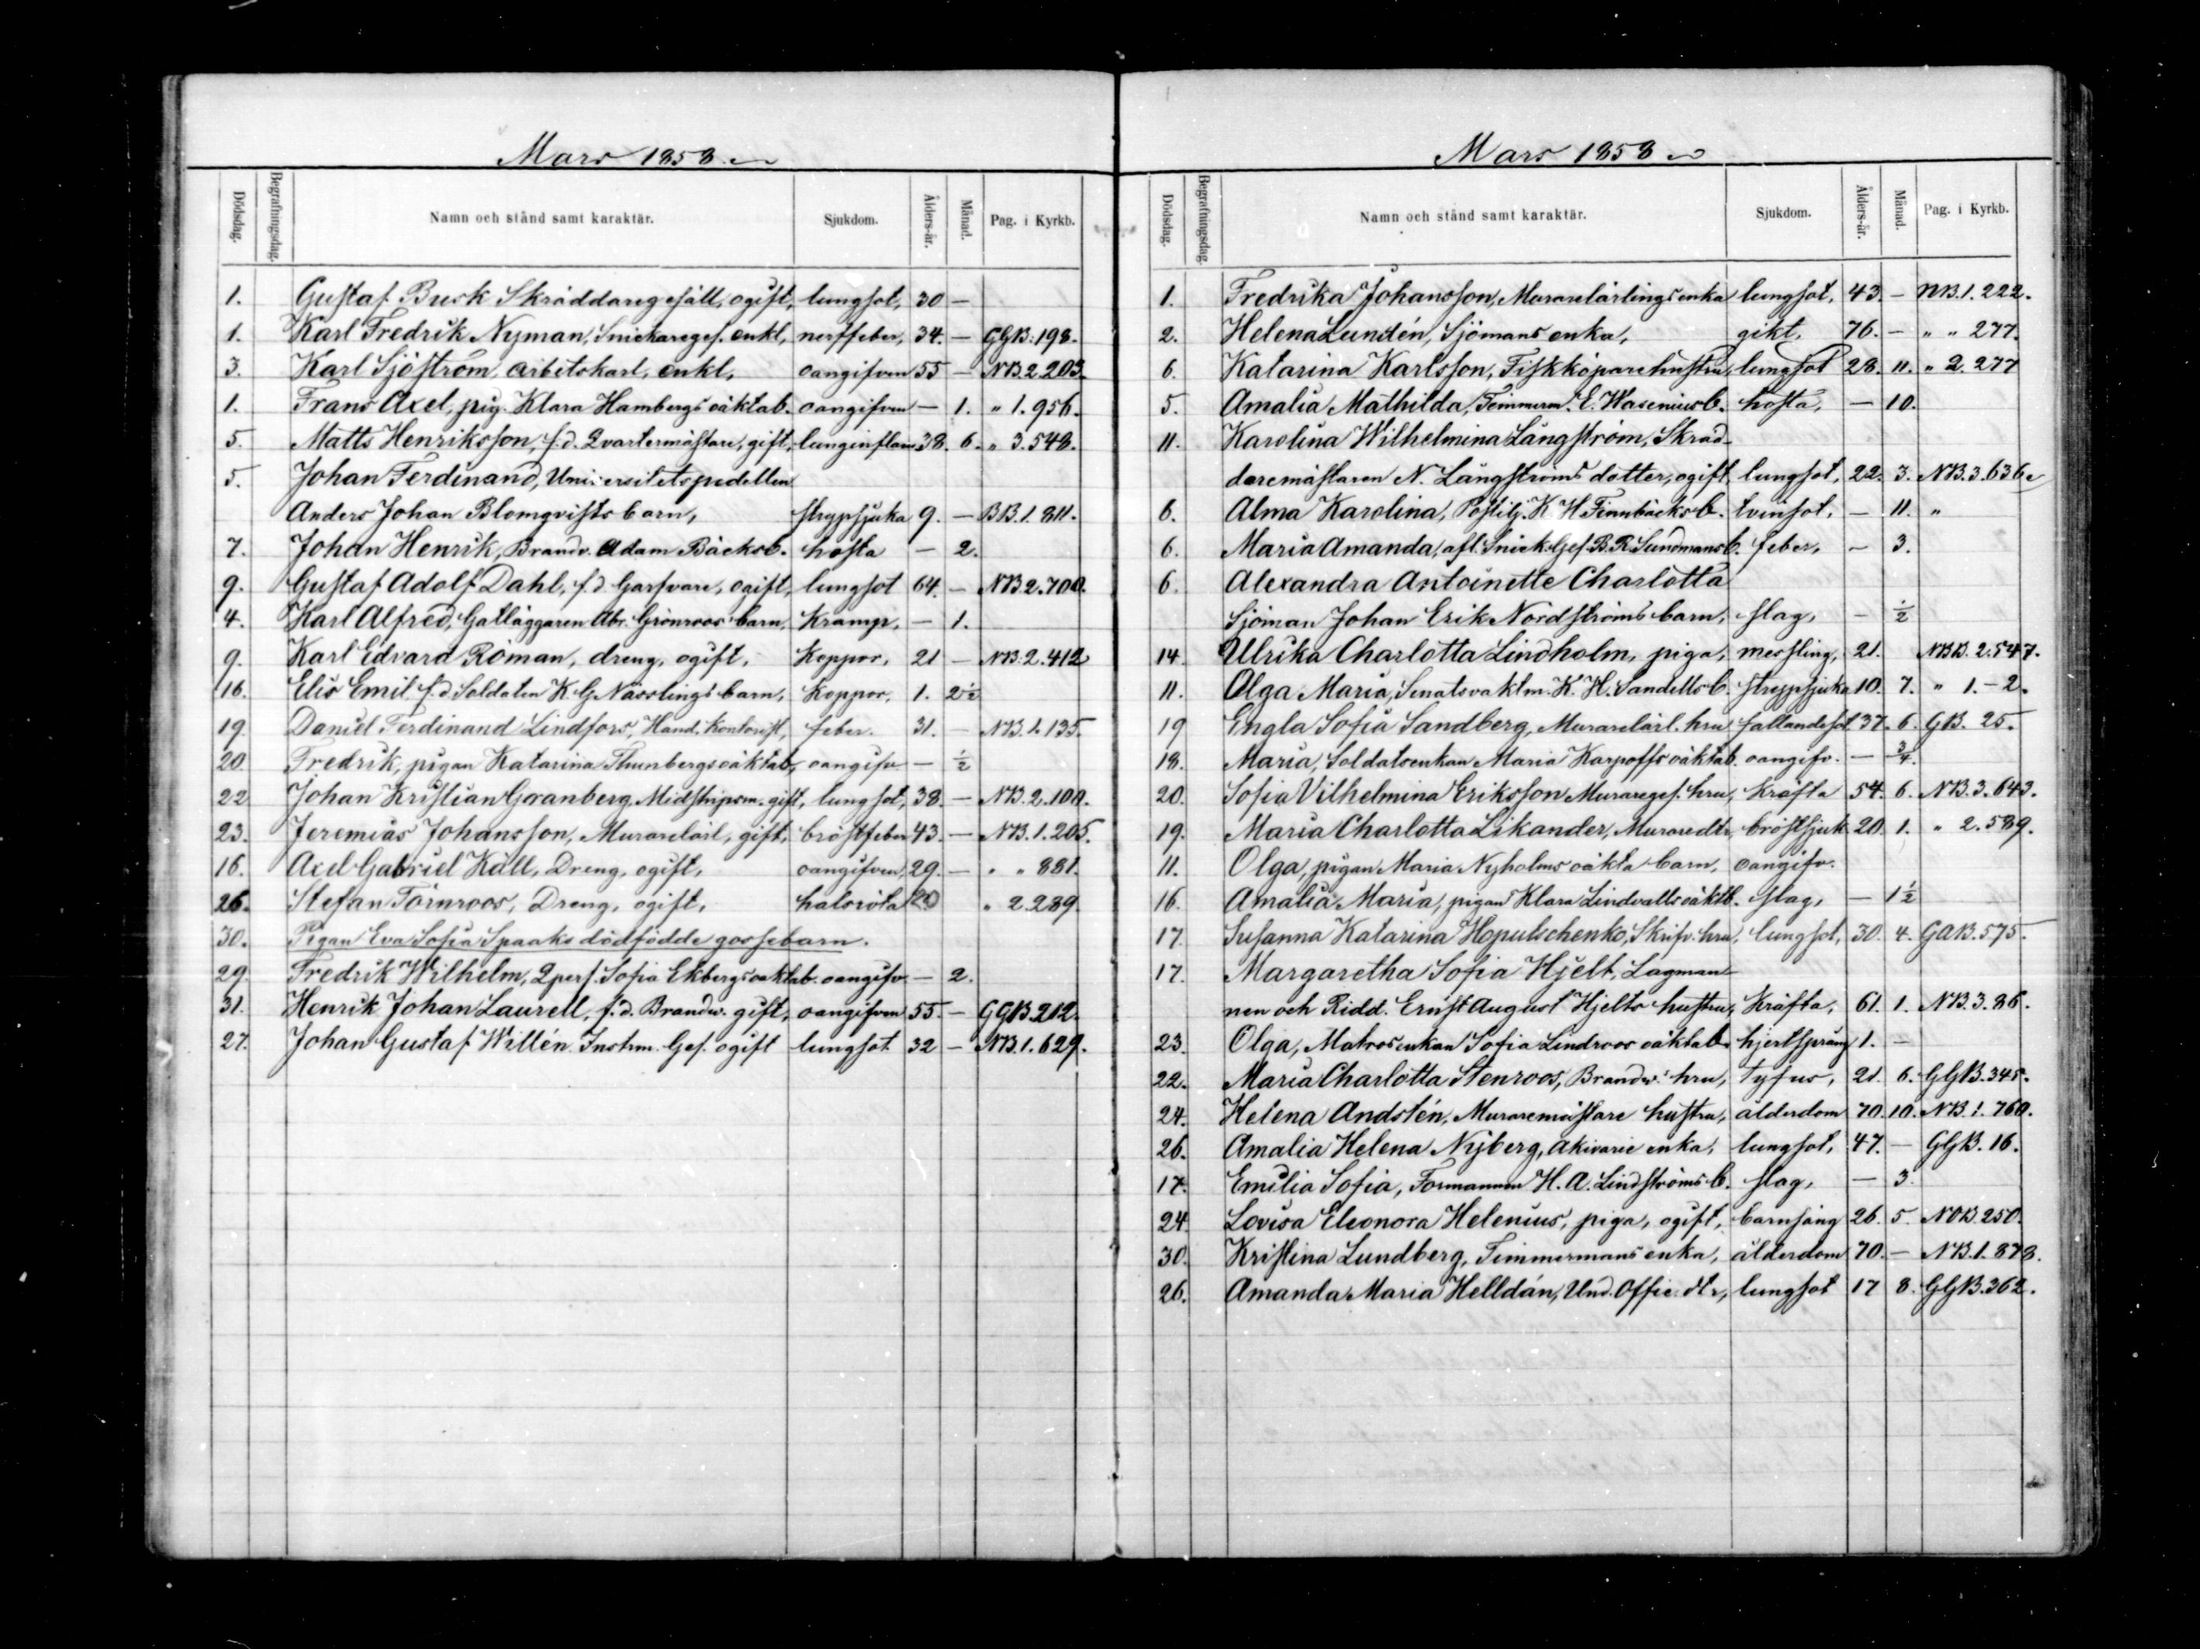 Mars 1858.
Dödsdag. Begrafningsdag. Namn och stånd samt karaktär. Sjukdom. Ålders-år. Månad. Pag. i Kyrkb.
1. Gustaf Busk Skräddaregesäll, ogift, lungsot, 30 —
1. Karl Fredrik Nyman, Snickareges. enkl, nerffeber, 34. — GGB. 198.
3. Karl Sjöström, arbetskarl, enkl, oangifven 55 — NB. 2. 203.
1. Frans Axel, pig. Klara Hambergs oäkta b. oangifven — 1. " 1. 956.
5. Matts Henriksson, f.d. Qvartermästare, gift, lunginflam 38. 6. " 3. 548.
5. Johan Ferdinand, Universitetspedellen
Anders Johan Blomqvists barn, strypsjuka 9. — BB. 1. 811.
7. Johan Henrik, Brandv. Adam Bäcks b. hosta — 2.
9. Gustaf Adolf Dahl, f.d. Garfvare, ogift, lungsot 64. — NB. 2. 700.
4. Karl Alfred, Gatläggaren Abr. Grönroos barn, Kramp, — 1.
9. Karl Edvard Roman, dreng, ogift, Koppor, 21 — NB. 2. 412
16. Elis Emil f.d Soldaten K. G. Nässlings barn, Koppor, 1. 2½
19. Daniel Ferdinand Lindfors, Hand. Kontorist, feber. 31. — NB. 1. 135.
20. Fredrik, pigan Katarina Thunbergs oäkta b, oangifv — ½
22. Johan Kristian Granberg, gift, lungsot, 38. — NB. 2. 100.
23. Jeremias Johansson, Murarelärl, gift, bröstfeber 43. — NB. 1. 205.
16. Axel Gabriel Käll, Dreng, ogift, oangifven, 29. — " " 881.
26. Stefan Törnroos, Dreng, ogift, halsröta 20 " 2 289.
30. Pigan Eva Sofia Spaaks dödfödde gossebarn.
29. Fredrik Wilhelm, Qpers. Sofia Ekbergs oäkta b. oangifv — 2.
31. Henrik Johan Laurell, f.d. Brandv. gift, oangifven 55. — GGB. 212.
27. Johan Gustaf Willén Instrm. Ges. ogift lungsot 32 — NB. 1. 629.
Mars 1858
Dödsdag. Begrafningsdag. Namn och stånd samt karaktär. Sjukdom. Ålders-år. Månad. Pag. i Kyrkb.
1. Fredrika Johansson, Murarelärlings enka lungsot, 43. — NB. 1. 222.
2. Helena Lundén, Sjömans enka, gikt, 76. — " " 277.
6. Katarina Karlsson, Fiskköpare hustru, lungsot 28. 11. " 2. 277
5. Amalia Mathilda, Timmerm. E. Wasenius b. hosta, — 10.
11. Karolina Wilhelmina Långström, Skräd-
daremästaren N. Långströms dotter, ogift, lungsot, 22. 3. NB. 3. 636.
6. Alma Karolina, Postilj. K H. Finnbäcks b. tvinsot, — 11. "
6. Maria Amanda, afl. Snick. Ges. B. R. Sundmans b. feber, — 3.
6. Alexandra Antoinette Charlotta
Sjöman Johan Erik Nordströms barn, slag, — ½
14. Ulrika Charlotta Lindholm, piga, messling, 21. NBB. 2. 547.
11. Olga Maria, Senatsvaktm. K. H. Sandells b. strypsjuka 10. 7. " 1. – 2.
19 Engla Sofia Sandberg, Murarelärl. hru fallandesot 37. 6. GB. 25.
18. Maria, Soldatsenkan Maria Karpoffs oäkta b. oangifv. — ¾.
20. Sofia Vilhelmina Eriksson Murareges. hru, Kräfta 54. 6. NB. 3. 643.
19. Maria Charlotta Likander, Muraredtr, bröstsjuk. 20. 1. " 2. 589.
11. Olga, pigan Maria Nyholms oäkta barn, oangifv.
16. Amalia Maria, pigan Klara Lindvalls oäkt b. slag, — 1½
17. Susanna Katarina Hopulschenko, Skrifv. hru, lungsot, 30. 4. GAB. 575.
17. Margaretha Sofia Hjelt, Lagman-
nen och Ridd. Ernst August Hjelts hustru, Kräfta, 61. 1. NB. 3. 86.
23. Olga, Matrosenkan Sofia Lindroos oäkta b. hjertsprång 1. —
22. Maria Charlotta Stenroos, Brandv. hru, tyfus, 21. 6. GGB. 345.
24. Helena Andstén, Muraremästare hustru, ålderdom 70. 10. NB. 1. 760.
26. Amalia Helena Nyberg, Akivarie enka, lungsot, 47. — GGB. 16.
17. Emilia Sofia, Formannen H. A. Lindströms b. slag, — 3.
24. Lovisa Eleonora Helenius, piga, ogift, barnsäng 26. 5. NOB. 250.
30. Kristina Lundberg, Timmermans enka, ålderdom 70. — NB. 1. 878.
26. Amanda Maria Helldán, Und. Offic. dtr, lungsot 17 8. GGB. 362.